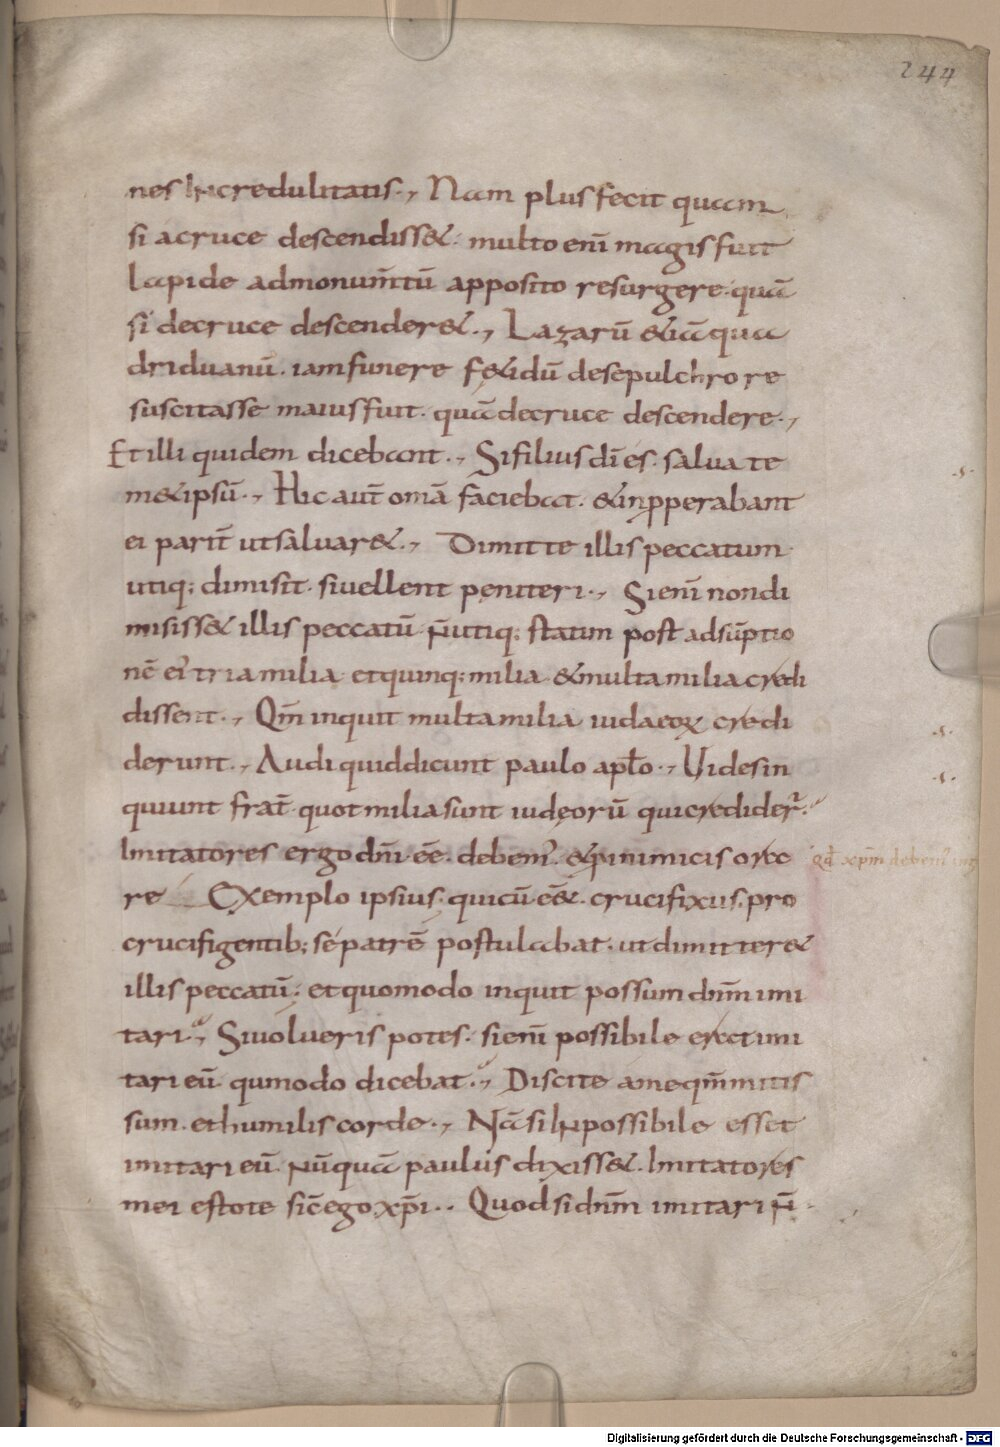 244
nes Incredulitatis., Nam plus fecit quam
si acruce descendiss&. multo enī magis fuit
lapide admonum̄tū apposito resurgere. quā
si decruce descender&., Lazarū &iā qua
driduanū. iam funere f&idū desepulchro re
suscitasse maius fuit. quā decruce descendere.,
Et illi quidem dicebant., Si filius dī es. salua te
m&ipsū., Hic aut̄ omā faciebat. &inpperabant
ei parit̄ utsaluar&., Dimitte illis peccatum
utiq; dimisit. siuellent peniteri., Si enī nondi
misiss& illis peccatū. n̄utiq; statim post adsūptio
nē ei' tria milia et quinq; milia &multa milia credi
dissent., Qm̄ inquit multa milia iudaeoꝝ credi
derunt., Audi quid dicunt paulo apłō., Uides in
quiunt frat̄ quot milia sunt iudęorū qui credider̄.
Imitatores ergo dn̄i eē. debem'. &ꝑ inimicis ora
re Exemplo ipsius. qui cū eē&. crucifixus. pro
crucifigentib; sé patrē postulabat. ut dimitter&
illis peccatū; et quomodo inquit possum dn̄m imi
tari., Si uolueris potes. si enī possibile erat imi
tari eū. qumodo dicebat., Discite ameqm̄ mitis
sum. et humilis corde., Nā si Inpossibile esset
imitari eū. nūquā paulus dixiss&. Imitatores
mei estote sic̄ ego xp̄i.. Quod si dn̄m imitari n̄
qđ xp̄m debem'
Digitalisierung gefördert durch die Deutsche Forschungsgemeinschaft - DFG